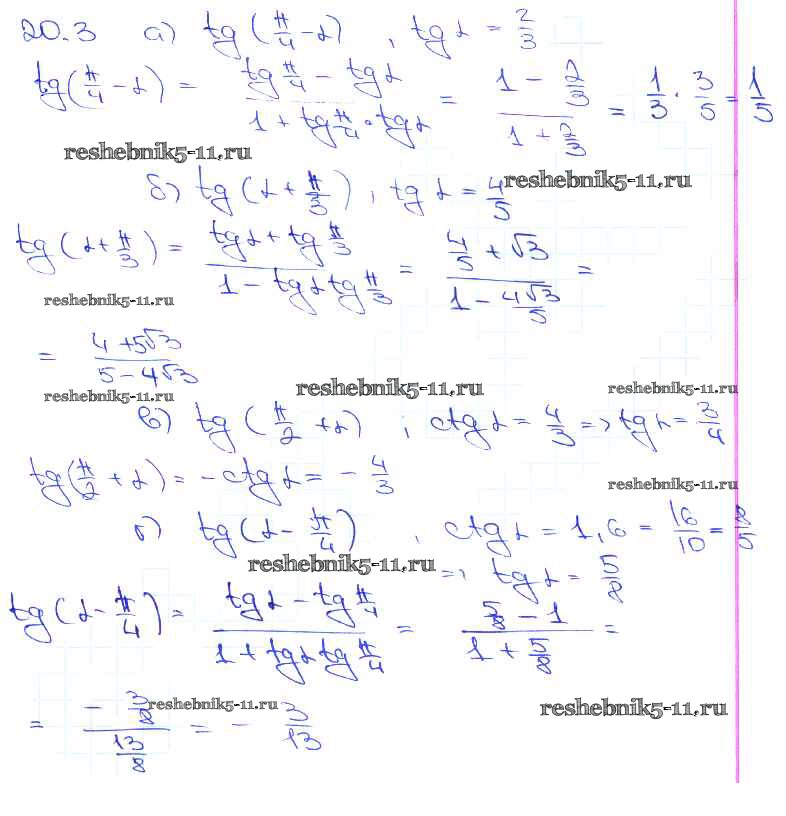 20.3 а) tg(π/4 - α), tg α = 2/3
tg(π/4 - α) = (tg π/4 - tg α)/(1 + tg π/4 · tg α) = (1 - 2/3)/(1 + 2/3) = 1/3 · 3/5 = 1/5
reshebnik5-11.ru
б) tg(α + π/3), tg α = 4/5
reshebnik5-11.ru
tg(α + π/3) = (tg α + tg π/3)/(1 - tg α tg π/3) = (4/5 + √3)/(1 - 4√3/5) =
reshebnik5-11.ru
= (4 + 5√3)/(5 - 4√3)
reshebnik5-11.ru
reshebnik5-11.ru
reshebnik5-11.ru
в) tg(π/2 + α), ctg α = 4/3 => tg α = 3/4
tg(π/2 + α) = - ctg α = - 4/3
reshebnik5-11.ru
г) tg(α - π/4), ctg α = 1,6 = 16/10 = 8/5
reshebnik5-11.ru
=> tg α = 5/8
tg(α - π/4) = (tg α - tg π/4)/(1 + tg α tg π/4) = (5/8 - 1)/(1 + 5/8) =
reshebnik5-11.ru
reshebnik5-11.ru
= (- 3/8)/(13/8) = - 3/13